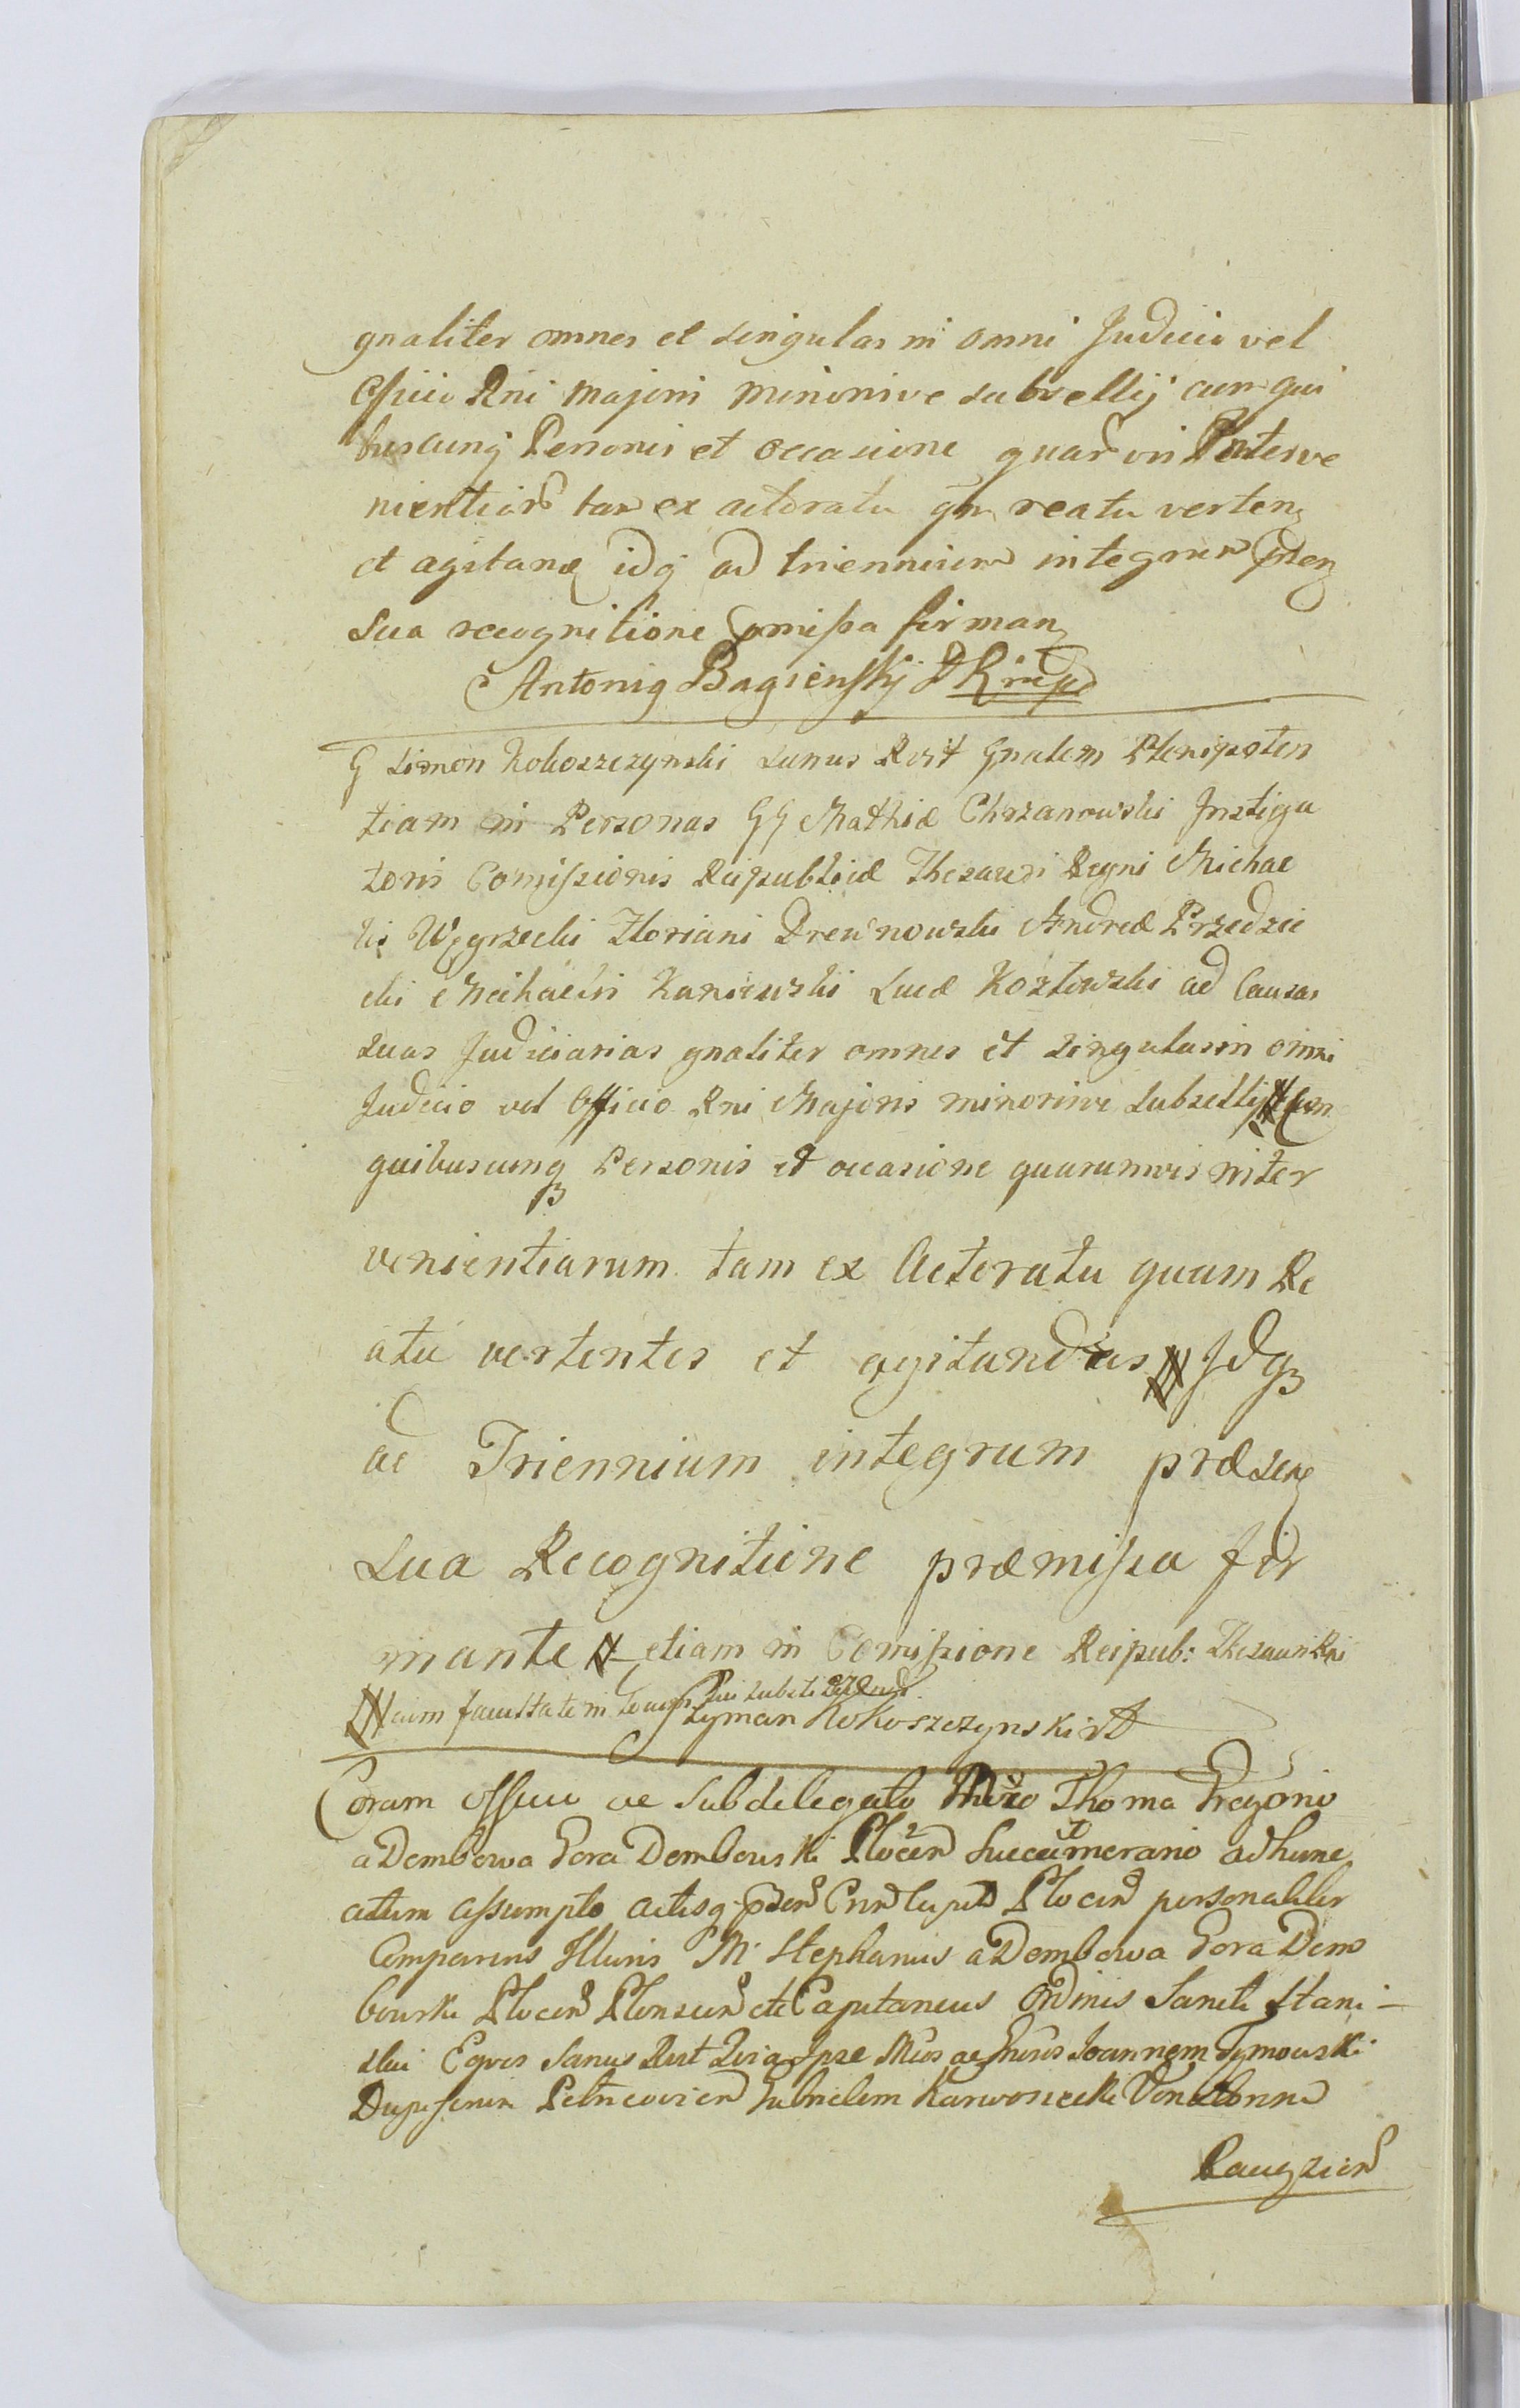 gnaliter omnes et singulas in omni Judicio vel
Officio Rni Majoris Minorisve subsellij cum qui
buscunq Personis et occasione quarvis Interve
nientiar tam ex actoratu qm reatu verten
et agitand idq ad triennium integrum pnten
sua recognitione pmissa firman
Antonig Bagieńskj
G Simon Kokoszczynski Sanus Rvit Gnalem Plenipoten
tiam in Personas GG Mathiæ Chrzanowski Instiga
toris Comissionis Reipublicæ Thesauri Regni Michae
lis Węgrzecki Floriani Drewnowski Andreæ Przedzie
cki Michaelis Kaniewski Lucæ Kozłowski ad Causas
suas Judiciarias gnaliter omnes et singulas in omni
Judicio vel Officio Rni Majoris minorisve Subsellij Cum
quibuscunq Personis et occasione quarumvis inter
venientiarum tam ex Actoratu quam Re
atu vertentes et agitandas Idq
ad Triennium integrum præsen
sua Recognitione præmissa fir
mante etiam in Comissione Reipub: Thesauri Rni
cum facultatem Szyman Kokoszczynski
Coram officio ac subdelegato Thoma Gregorio
a Dembowa Gora Dembowski Plocen Succamerario ad hunc
actum assumpto actisq pnten Plocen personaliter
Comparens Illuris M. Stephanus a Dembowa Gora Dem
bowski Plocen Plonscen etc Capitaneus Ordinis Sancti Stani-
slai Eques Sanus Rvit Quia Ipse Mcos ac Gnsos Joannem Tymowski
Dapiferum Petricovien Gabrielem Karwosiecki